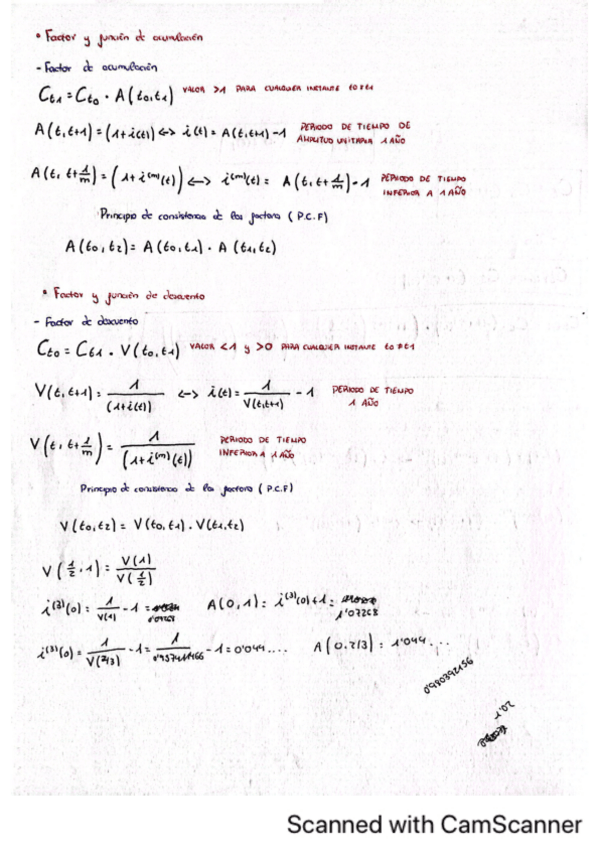 • Factor y función de acumulación
- Factor de acumulación
Ct1 = Ct0 · A(t0,t1) VALOR >1 PARA CUALQUIER INSTANTE t0≠t1
A(t,t+1) = (1+i(t)) <-> i(t) = A(t,t+1) -1 PERIODO DE TIEMPO DE
AMPLITUD UNITARIA 1 AÑO
A(t, t+1/m) = (1+i^(m)(t)) <-> i^(m)(t) = A(t,t+1/m) -1 PERIODO DE TIEMPO
INFERIOR A 1 AÑO
Principio de consistencia de los factores (P.C.F)
A(t0,t2) = A(t0,t1) · A(t1,t2)
• Factor y función de descuento
- Factor de descuento
Ct0 = Ct1 · V(t0,t1) VALOR <1 y >0 PARA CUALQUIER INSTANTE t0≠t1
V(t,t+1) = 1/(1+i(t)) <-> i(t) = 1/V(t,t+1) - 1 PERIODO DE TIEMPO
1 AÑO
V(t, t+1/m) = 1/(1+i^(m)(t)) PERIODO DE TIEMPO
INFERIOR A 1 AÑO
Principio de consistencia de los factores (P.C.F)
V(t0,t2) = V(t0,t1) · V(t1,t2)
V(1/2,1) = V(1)/V(1/2)
(0) = 1/V(1) - 1 = A(0,1) = i^(3)(0)+1 =
1'07268
i^(3)(0) = 1/V(2/3) - 1 = 1/ -1 = 0'044.... A(0,2/3) = 1'044...
0'980392156
1'02
Scanned with CamScanner